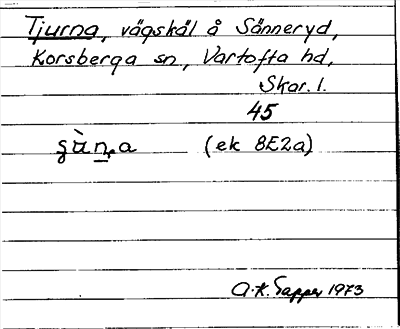 Tjurna, vägskäl å Sänneryd,
Korsberga sn, Vartofta hd,
Skar. l.
45
(ek 8E2a)
A.K. Sapper 1973